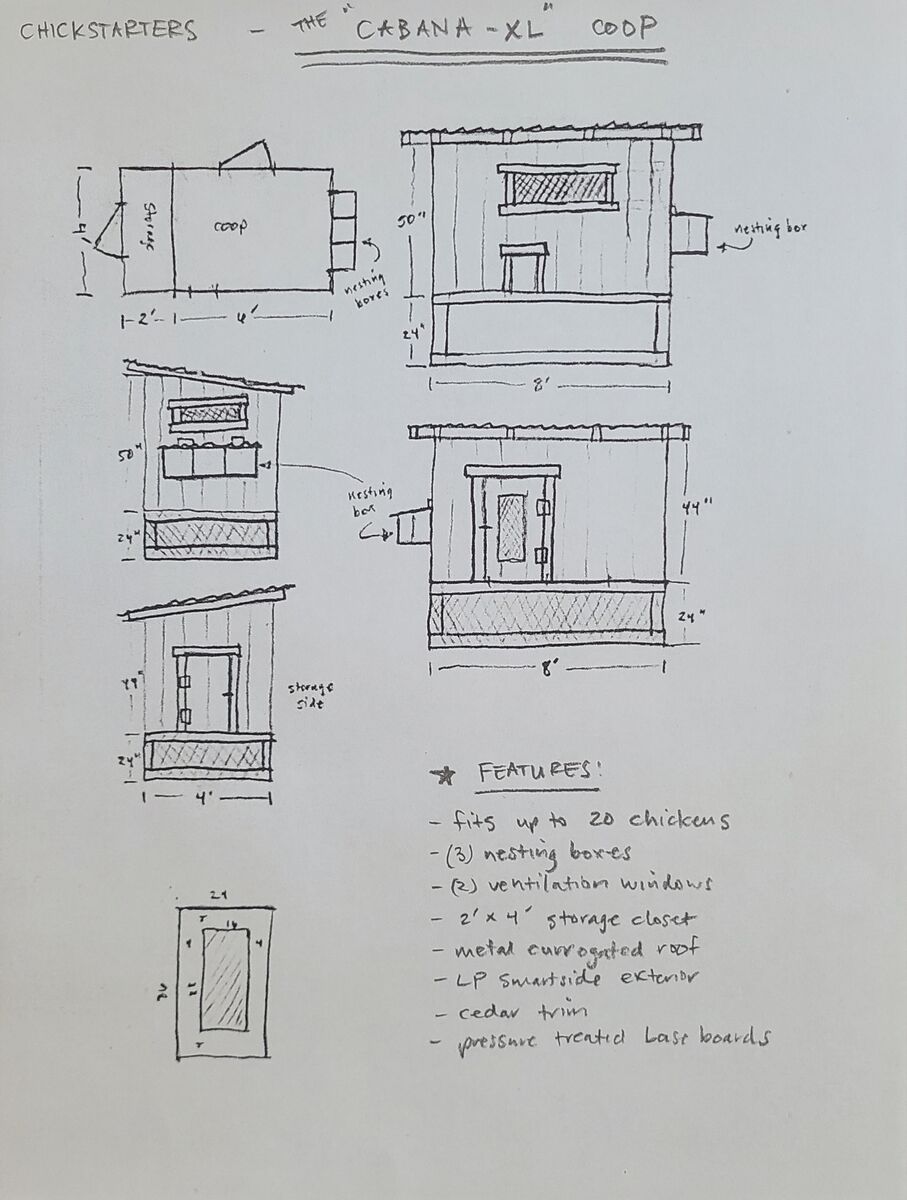 CHICKSTARTERS - THE "CABANA-XL" COOP
4'
Storage
COOP
nesting
boxes
2'
6'
50"
24"
nesting box
8'
50"
24"
nesting
box
44"
24"
8'
44"
24"
storage
side
4'
★ FEATURES:
- fits up to 20 chickens
- (3) nesting boxes
- (2) ventilation windows
- 2' x 4' storage closet
- metal currogated roof
- LP Smartside exterior
- cedar trim
- pressure treated base boards
24
16
4
4